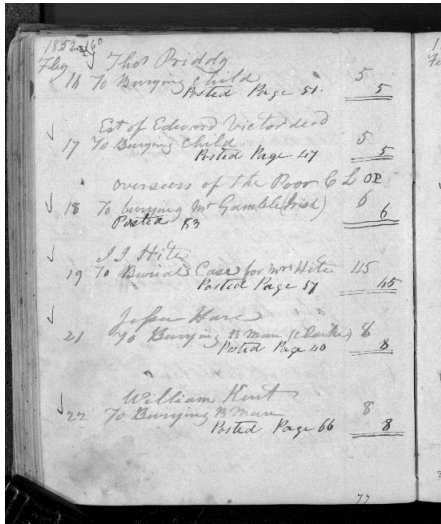 1852
Feby Thos Priddy
16 To Burying Child 5
Posted Page 51. 5
Est of Edward Victor dead
17 To Burying Child 5
Posted Page 47 5
Overseers of the Poor C L OP
18 To burying Mr Gamble (Irish) 6
Posted 53 6
J J Hite
19 To Burial Case for Mrs Hite 45
Posted Page 57 45
Hare
21 To Burying B Man 8
Posted Page 40 8
William Kent
22 To Burying B Man 8
Posted Page 66 8
77